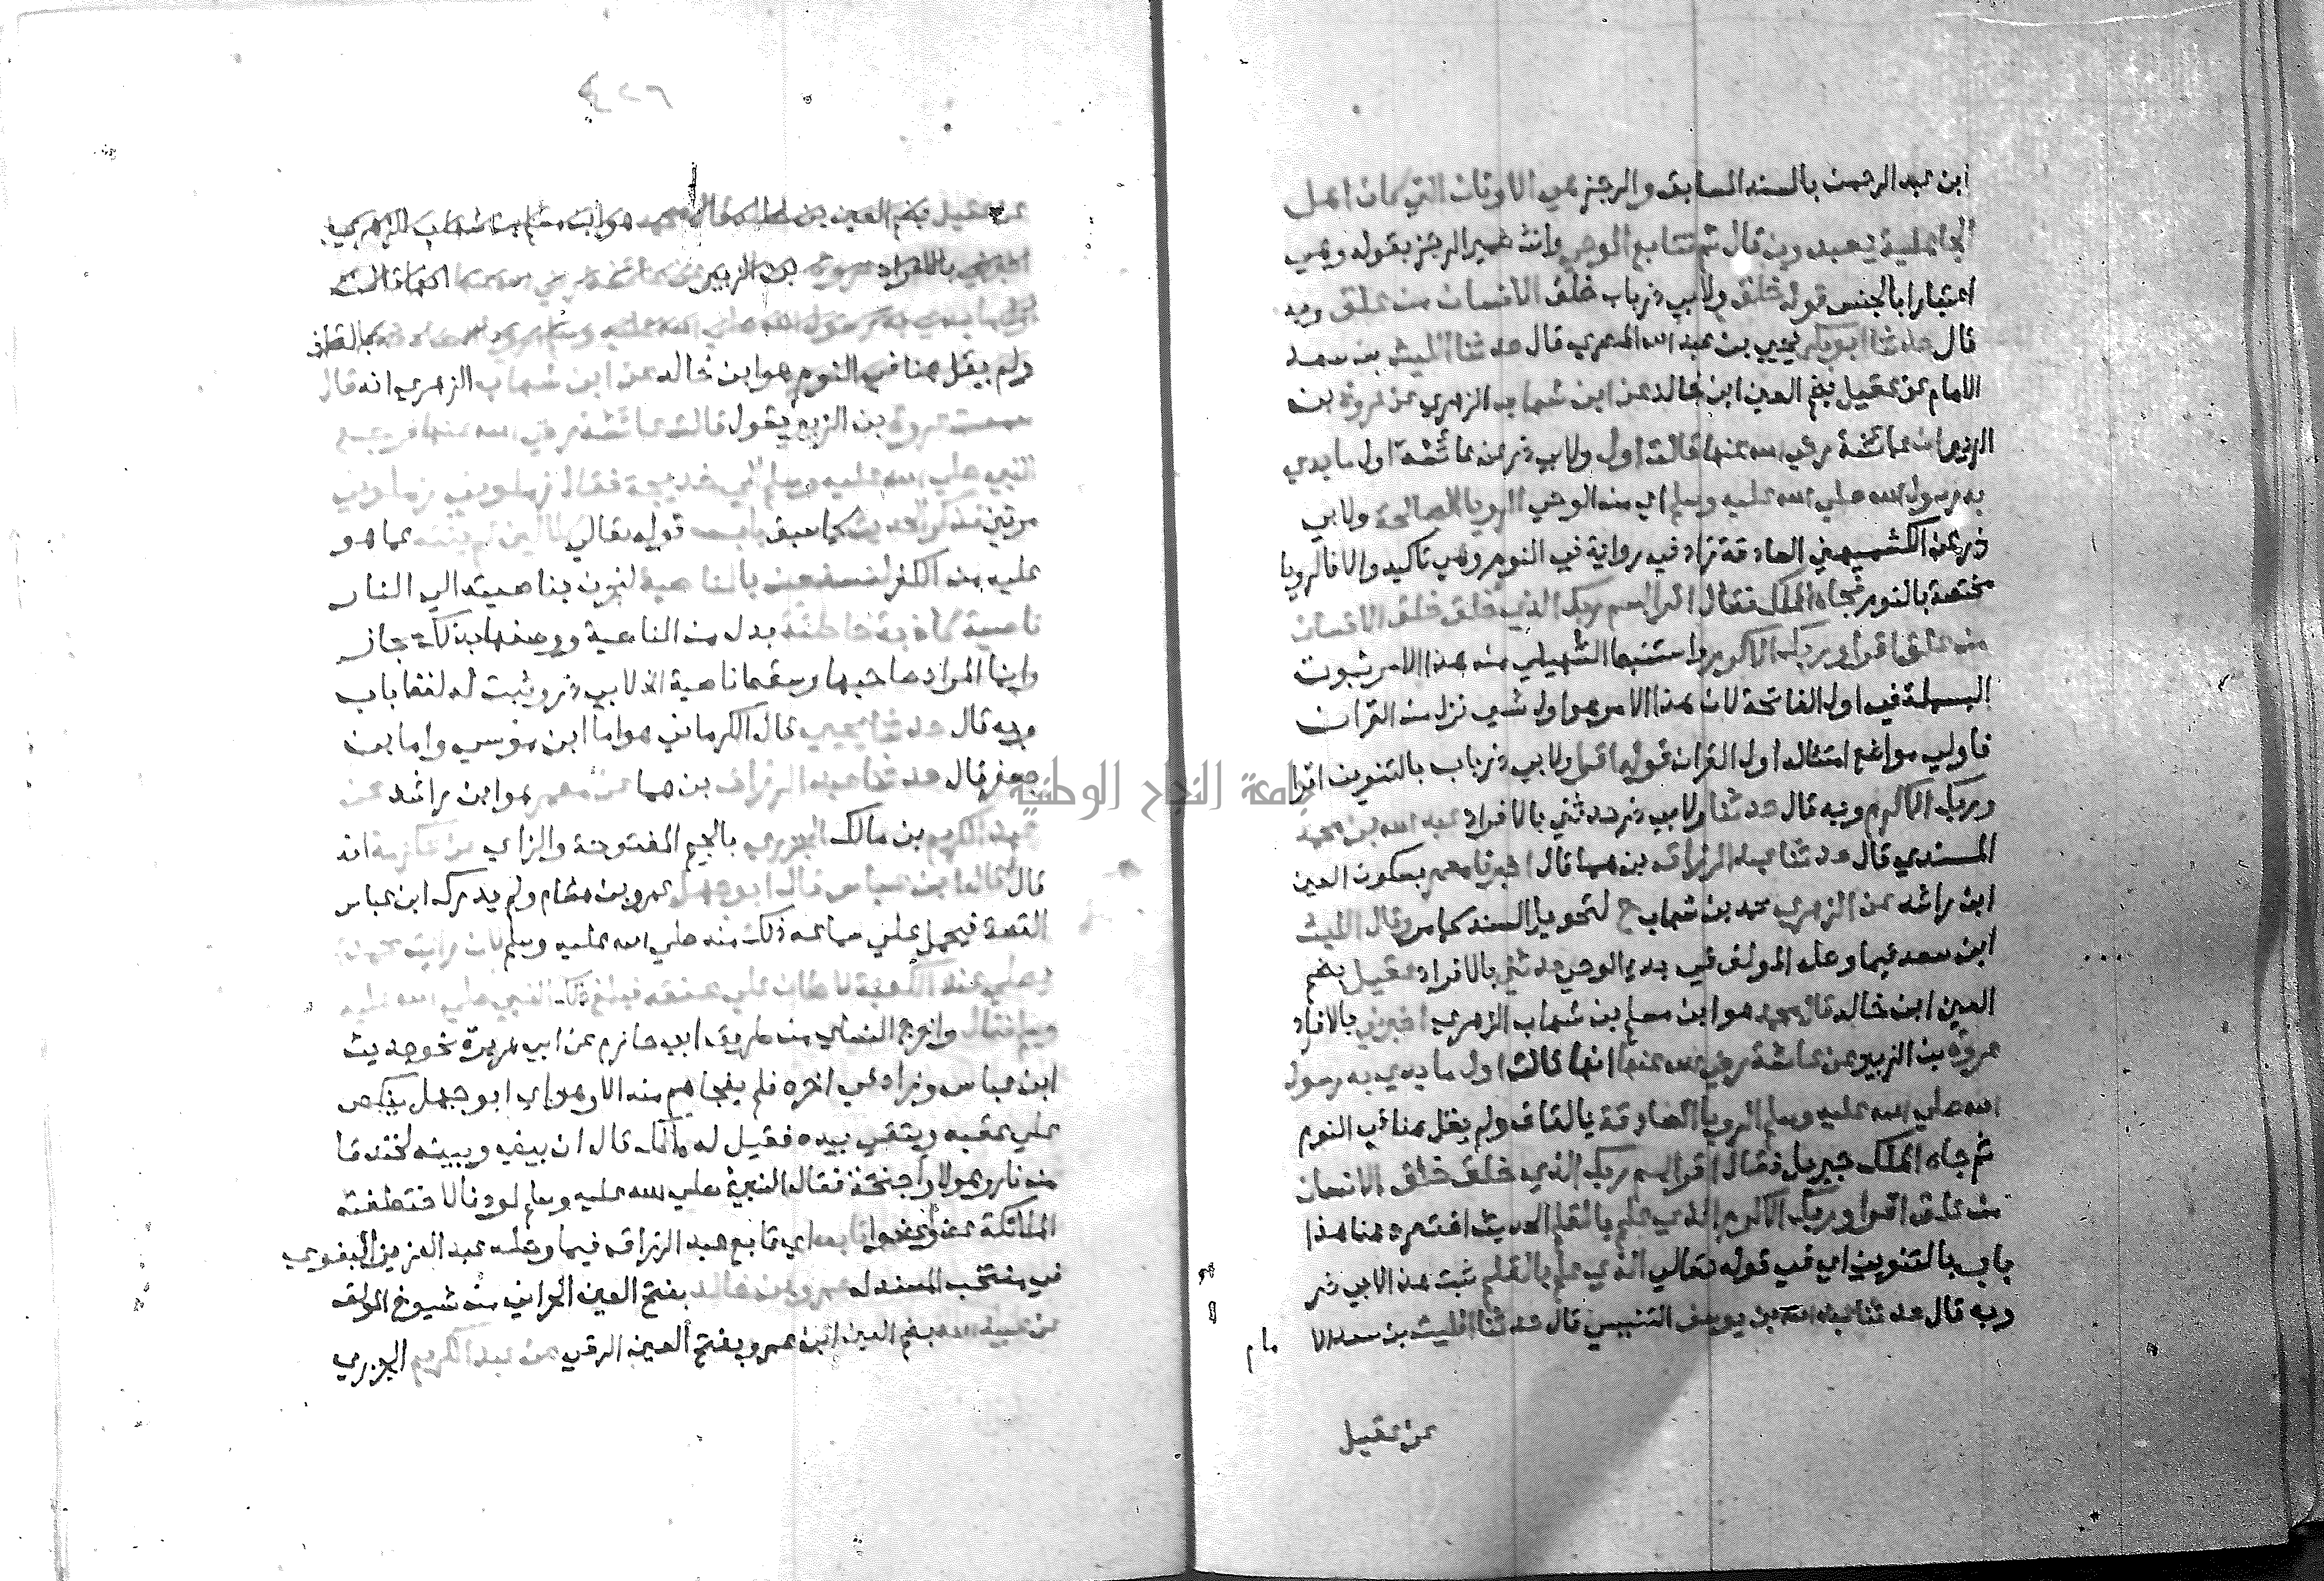 ابن عبد الرحمن بالسند السابق والرجز هي الاوثان التي كان اهل
الجاهلية يعبدون قال ثم تتابع الوحي وانث ضمير الرجز بقوله وهي
اعتبارا بالجنس قوله خلق ولابي ذر باب خلق الانسان من علق وبه
قال حدثنا ابو بكر يحيى بن عبد الله المصري قال حدثنا الليث بن سعد
الامام عن عقيل بضم العين ابن خالد عن ابن شهاب الزهري عن عروة بن
الزبير ان عائشة رضي الله عنها قالت اول ولابي ذر عن عائشة اول ما بدي
به رسول الله صلي الله عليه وسلم اي من الوحي الرويا الصالحة ولابي
ذر عن الكشميهني الصادقة زاد في رواية في النوم وهي تاكيد والا فالرويا
مختصة بالنوم فجاه الملك فقال اقرا باسم ربك الذي خلق خلق الانسان
من علق اقرا وربك الاكرم واستنبط السهيلي من هذا الامر ثبوت
البسملة في اول الفاتحة لان هذا الامر هو اول شي نزل من القران
فاولي مواضع امتثاله اول القران قوله اقرا ولابي ذر باب بالتنوين اقرا
وربك الاكرم وبه قال حدثنا ولابي ذر حدثني بالافراد عبد الله بن محمد
المسندي قال حدثنا عبد الرزاق بن همام قال اخبرنا معمر بسكون العين
ابن راشد عن الزهري محمد بن شهاب ح لتحويل السند كما مر وقال الليث
ابن سعد فيما وصله المولف في بدي الوحي حدثني بالافراد عقيل بضم
العين ابن خالد قال محمد هو ابن مسلم بن شهاب الزهري اخبرني بالافراد
عروة بن الزبير عن عائشة رضي الله عنها انها قالت اول ما بدي به رسول
الله صلي الله عليه وسلم الرويا الصادقة بالقاف ولم يقل هنا في النوم
ثم جاه الملك جبريل فقال اقرا باسم ربك الذي خلق خلق الانسان
من علق اقرا وربك الاكرم الذي علم بالقلم الحديث اختصره هنا هذا
باب بالتنوين اي في قوله تعالي الذي علم بالقلم ثبت هذا لابي ذر
وبه قال حدثنا عبد الله بن يوسف التنيسي قال حدثنا الليث بن سعد الا
مام
عن عقيل
٤٢٦
عن عقيل بضم العين بن خالد قال محمد هو ابن مسلم بن شهاب الزهري
اخبرني بالافراد عروة بن الزبير عن عائشة رضي الله عنها انها قالت
اول ما بدي به رسول الله صلي الله عليه وسلم الرويا الصادقة بالقاف
ولم يقل هنا في النوم هو ابن خالد عن ابن شهاب الزهري انه قال
سمعت عروة بن الزبير يقول قالت عائشة رضي الله عنها فرجع
النبي صلي الله عليه وسلم الي خديجة فقال زملوني زملوني
مرتين فذكر الحديث كما سبق باب قوله تعالي كلا لين لم ينته عما هو
عليه من الكفر لنسفعن بالناصية لنجرن بناصيته الي النار
ناصية كاذبة خاطئة بدل من الناصية ووصفها بذلك مجاز
وانما المراد صاحبها وسقط ناصية الخ لابي ذر وثبت له لفظ باب
وبه قال حدثنا يحيى قال الكرماني هو اما ابن موسي واما بن
جعفر قال حدثنا عبد الرزاق بن همام عن معمر هو ابن راشد عن
عبد الكريم بن مالك الجزري بالجيم المفتوحة والزاي عن عكرمة انه
قال قال ابن عباس قال ابو جهل عمرو بن هشام ولم يدرك ابن عباس
القصة فيحمل علي سماعه ذلك منه صلي الله عليه وسلم لان رايت محمدا
يصلي عند الكعبة لاطان علي عنقه فبلغ ذلك النبي صلي الله عليه
وسلم فقال واخرج النسائي من طريق ابي حازم عن ابي هريرة نحو حديث
ابن عباس وزاد في اخره فلم يفجاهم منه الا وهو اي ابو جهل ينكص
علي عقبه ويتقي بيده فقيل له مالك قال ان بيني وبينه لخندقا
من نار وهولا واجنحة فقال النبي صلي الله عليه وسلم لو دنا لاختطفته
الملائكة عضوا عضوا تابعه اي تابع عبد الرزاق فيما وصله عبد العزيز البغوي
في منتخب المسند له عمرو بن خالد بفتح العين الحراني من شيوخ المولف
عن عبيد الله بضم العين ابن عمرو بفتح العين الرقي عن عبد الكريم الجزري
جامعة النجاح الوطنية